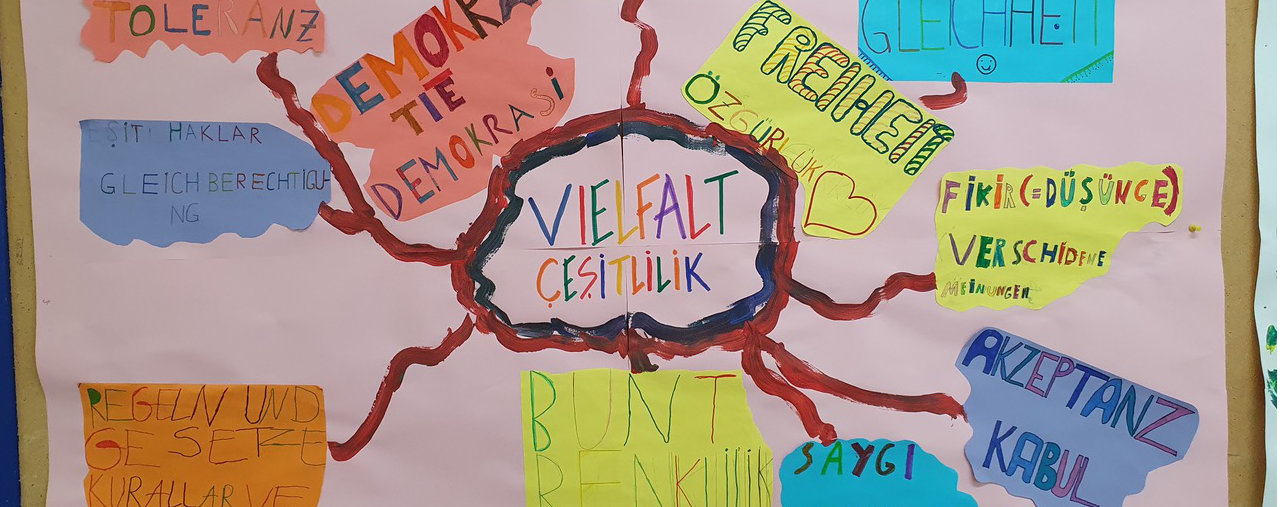 TOLERANZ
DEMOKRA
TIE
DEMOKRASİ
FREIHEIT
ÖZGÜRLÜK
GLEICHHEIT
EŞİT HAKLAR
GLEICHBERECHTIGU
NG
VIELFALT
ÇEŞİTLİLİK
FİKİR (=DÜŞÜNCE)
VERSCHİDENE
MEİNUNGEN
REGELN UND
GESETZE
KURALLAR VE
BUNT
RENKLİLİK
SAYGI
AKZEPTANZ
KABUL